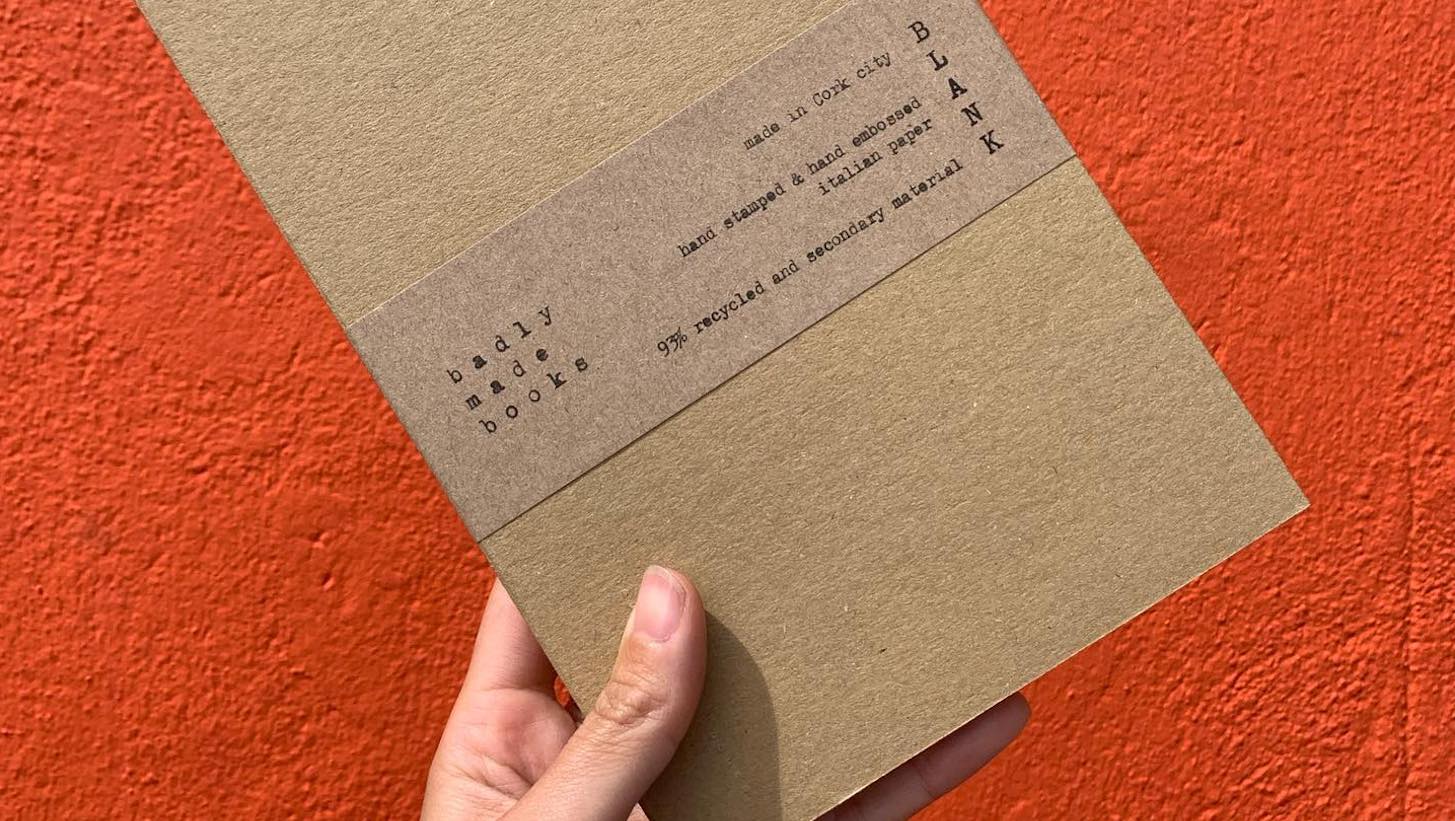 badly
made
books
made in Cork city
hand stamped & hand embossed
italian paper
93% recycled and secondary material
BLANK